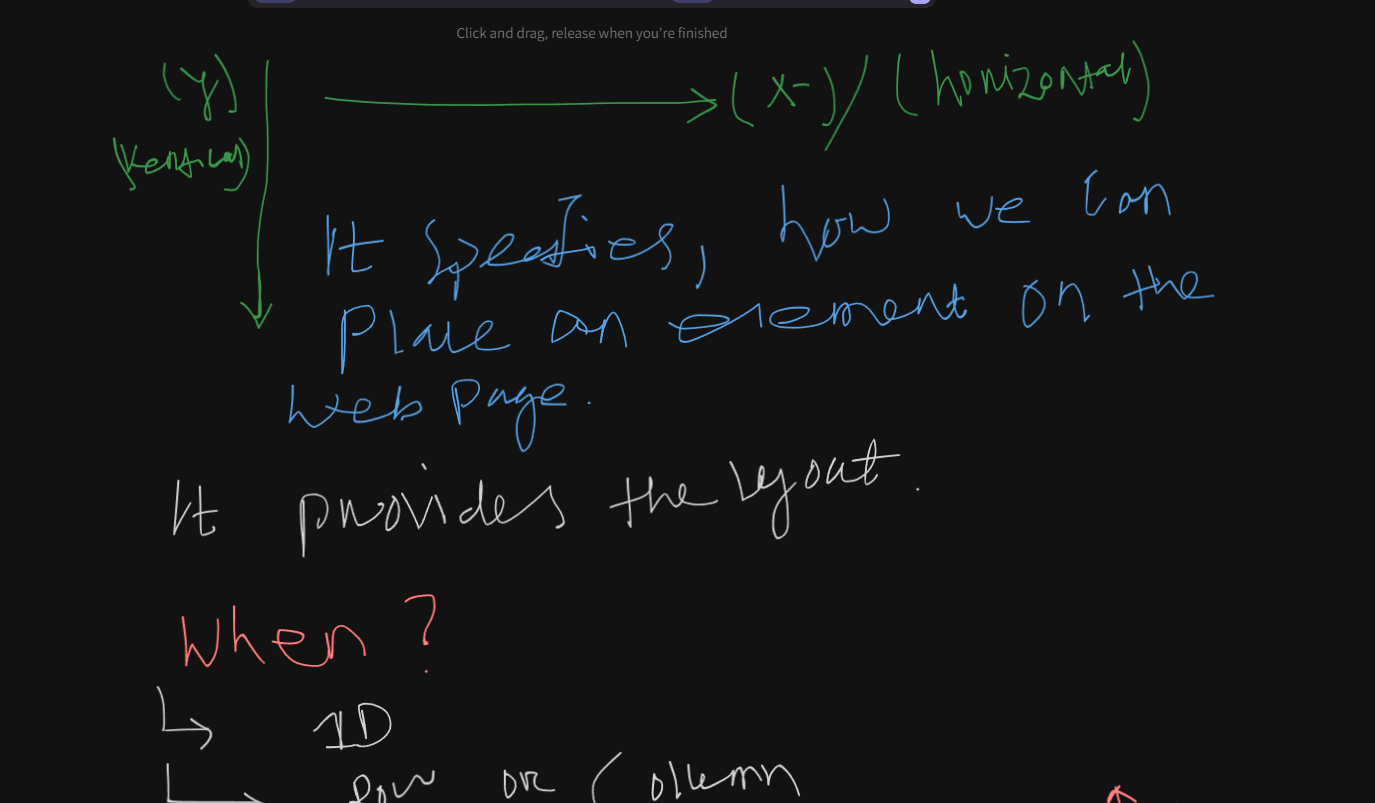 Click and drag, release when you're finished
(Y) (X-) / (horizontal)
(Vertical)
It Specifies, how we Can
Place an element on the
web page.
It provides the layout.
When?
1D
Row or Column